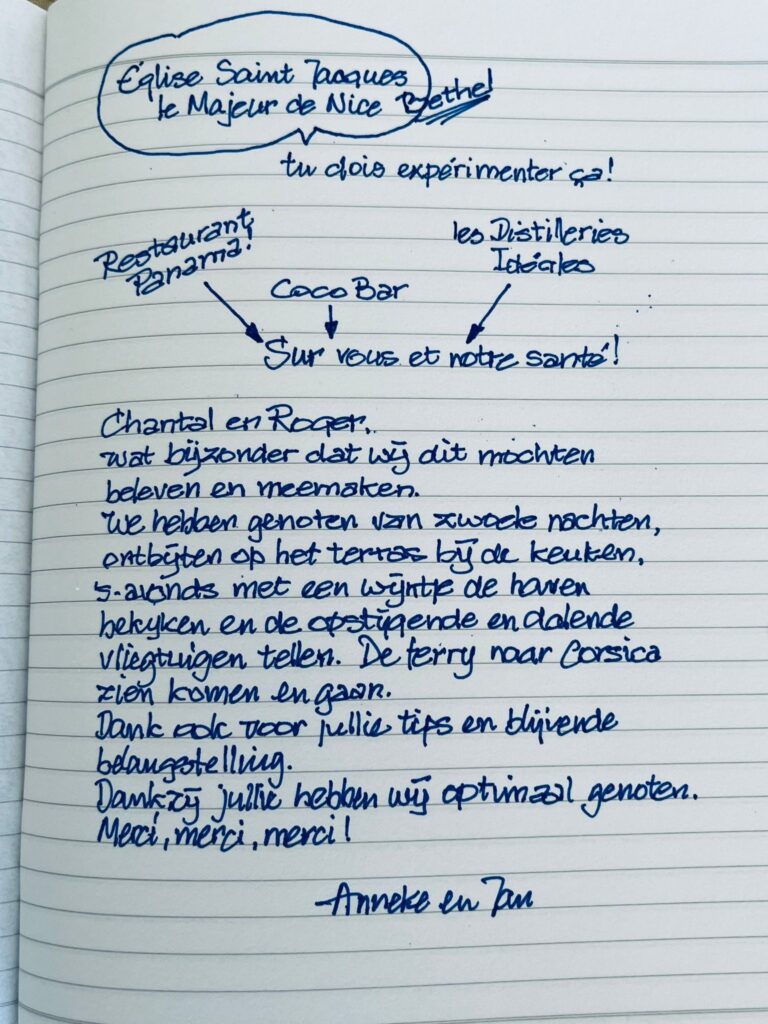 Église Saint Jacques
le Majeur de Nice Bethel
tu dois expérimenter ça!
Restaurant
Panama!
les Distilleries
Idéales
Coco Bar
Sur vous et notre santé!
Chantal en Roger,
wat bijzonder dat wij dit mochten
beleven en meemaken.
We hebben genoten van zwoele nachten,
ontbijten op het terras bij de keuken,
's-avonds met een wijntje de haven
bekijken en de opstijgende en dalende
vliegtuigen tellen. De ferry naar Corsica
zien komen en gaan.
Dank ook voor jullie tips en blijvende
belangstelling.
Dankzij jullie hebben wij optimaal genoten.
Merci, merci, merci!
-Anneke en Jan